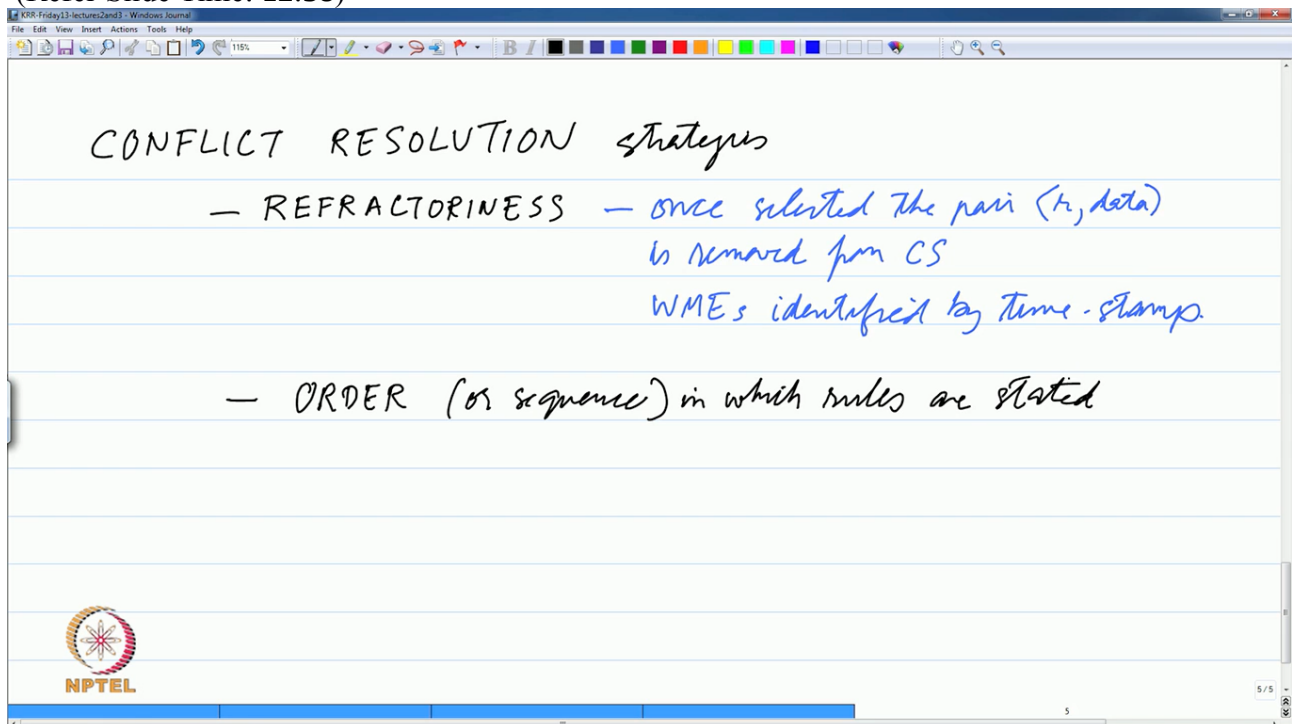 (Refer Slide Time: 22:38)
KRR-Friday13-lectures2and3 - Windows Journal
File Edit View Insert Actions Tools Help
115%
B I
CONFLICT RESOLUTION strategies
— REFRACTORINESS — once selected the pair (r, data)
is removed from CS
WMEs identified by time-stamp.
— ORDER (or sequence) in which rules are stated
NPTEL
5 / 5
5